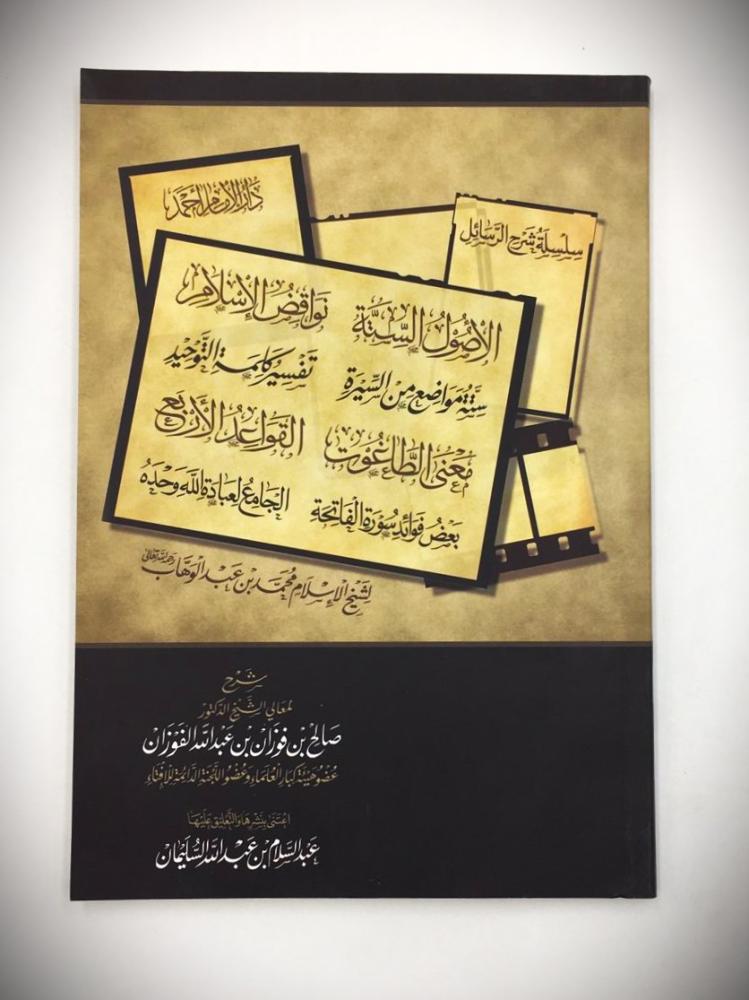 دار الإمام أحمد
سلسلة شرح الرسائل
الأصول الستة
نواقض الإسلام
ستة مواضع من السيرة
تفسير كلمة التوحيد
معنى الطاغوت
القواعد الأربع
بعض فوائد سورة الفاتحة
الجامع لعبادة الله وحده
لشيخ الإسلام محمد بن عبد الوهاب رحمه الله تعالى
شرح
لمعالي الشيخ الدكتور
صالح بن فوزان بن عبد الله الفوزان
عضو هيئة كبار العلماء وعضو اللجنة الدائمة للإفتاء
اعتنى بنشرها والتعليق عليها
عبد السلام بن عبد الله السليمان